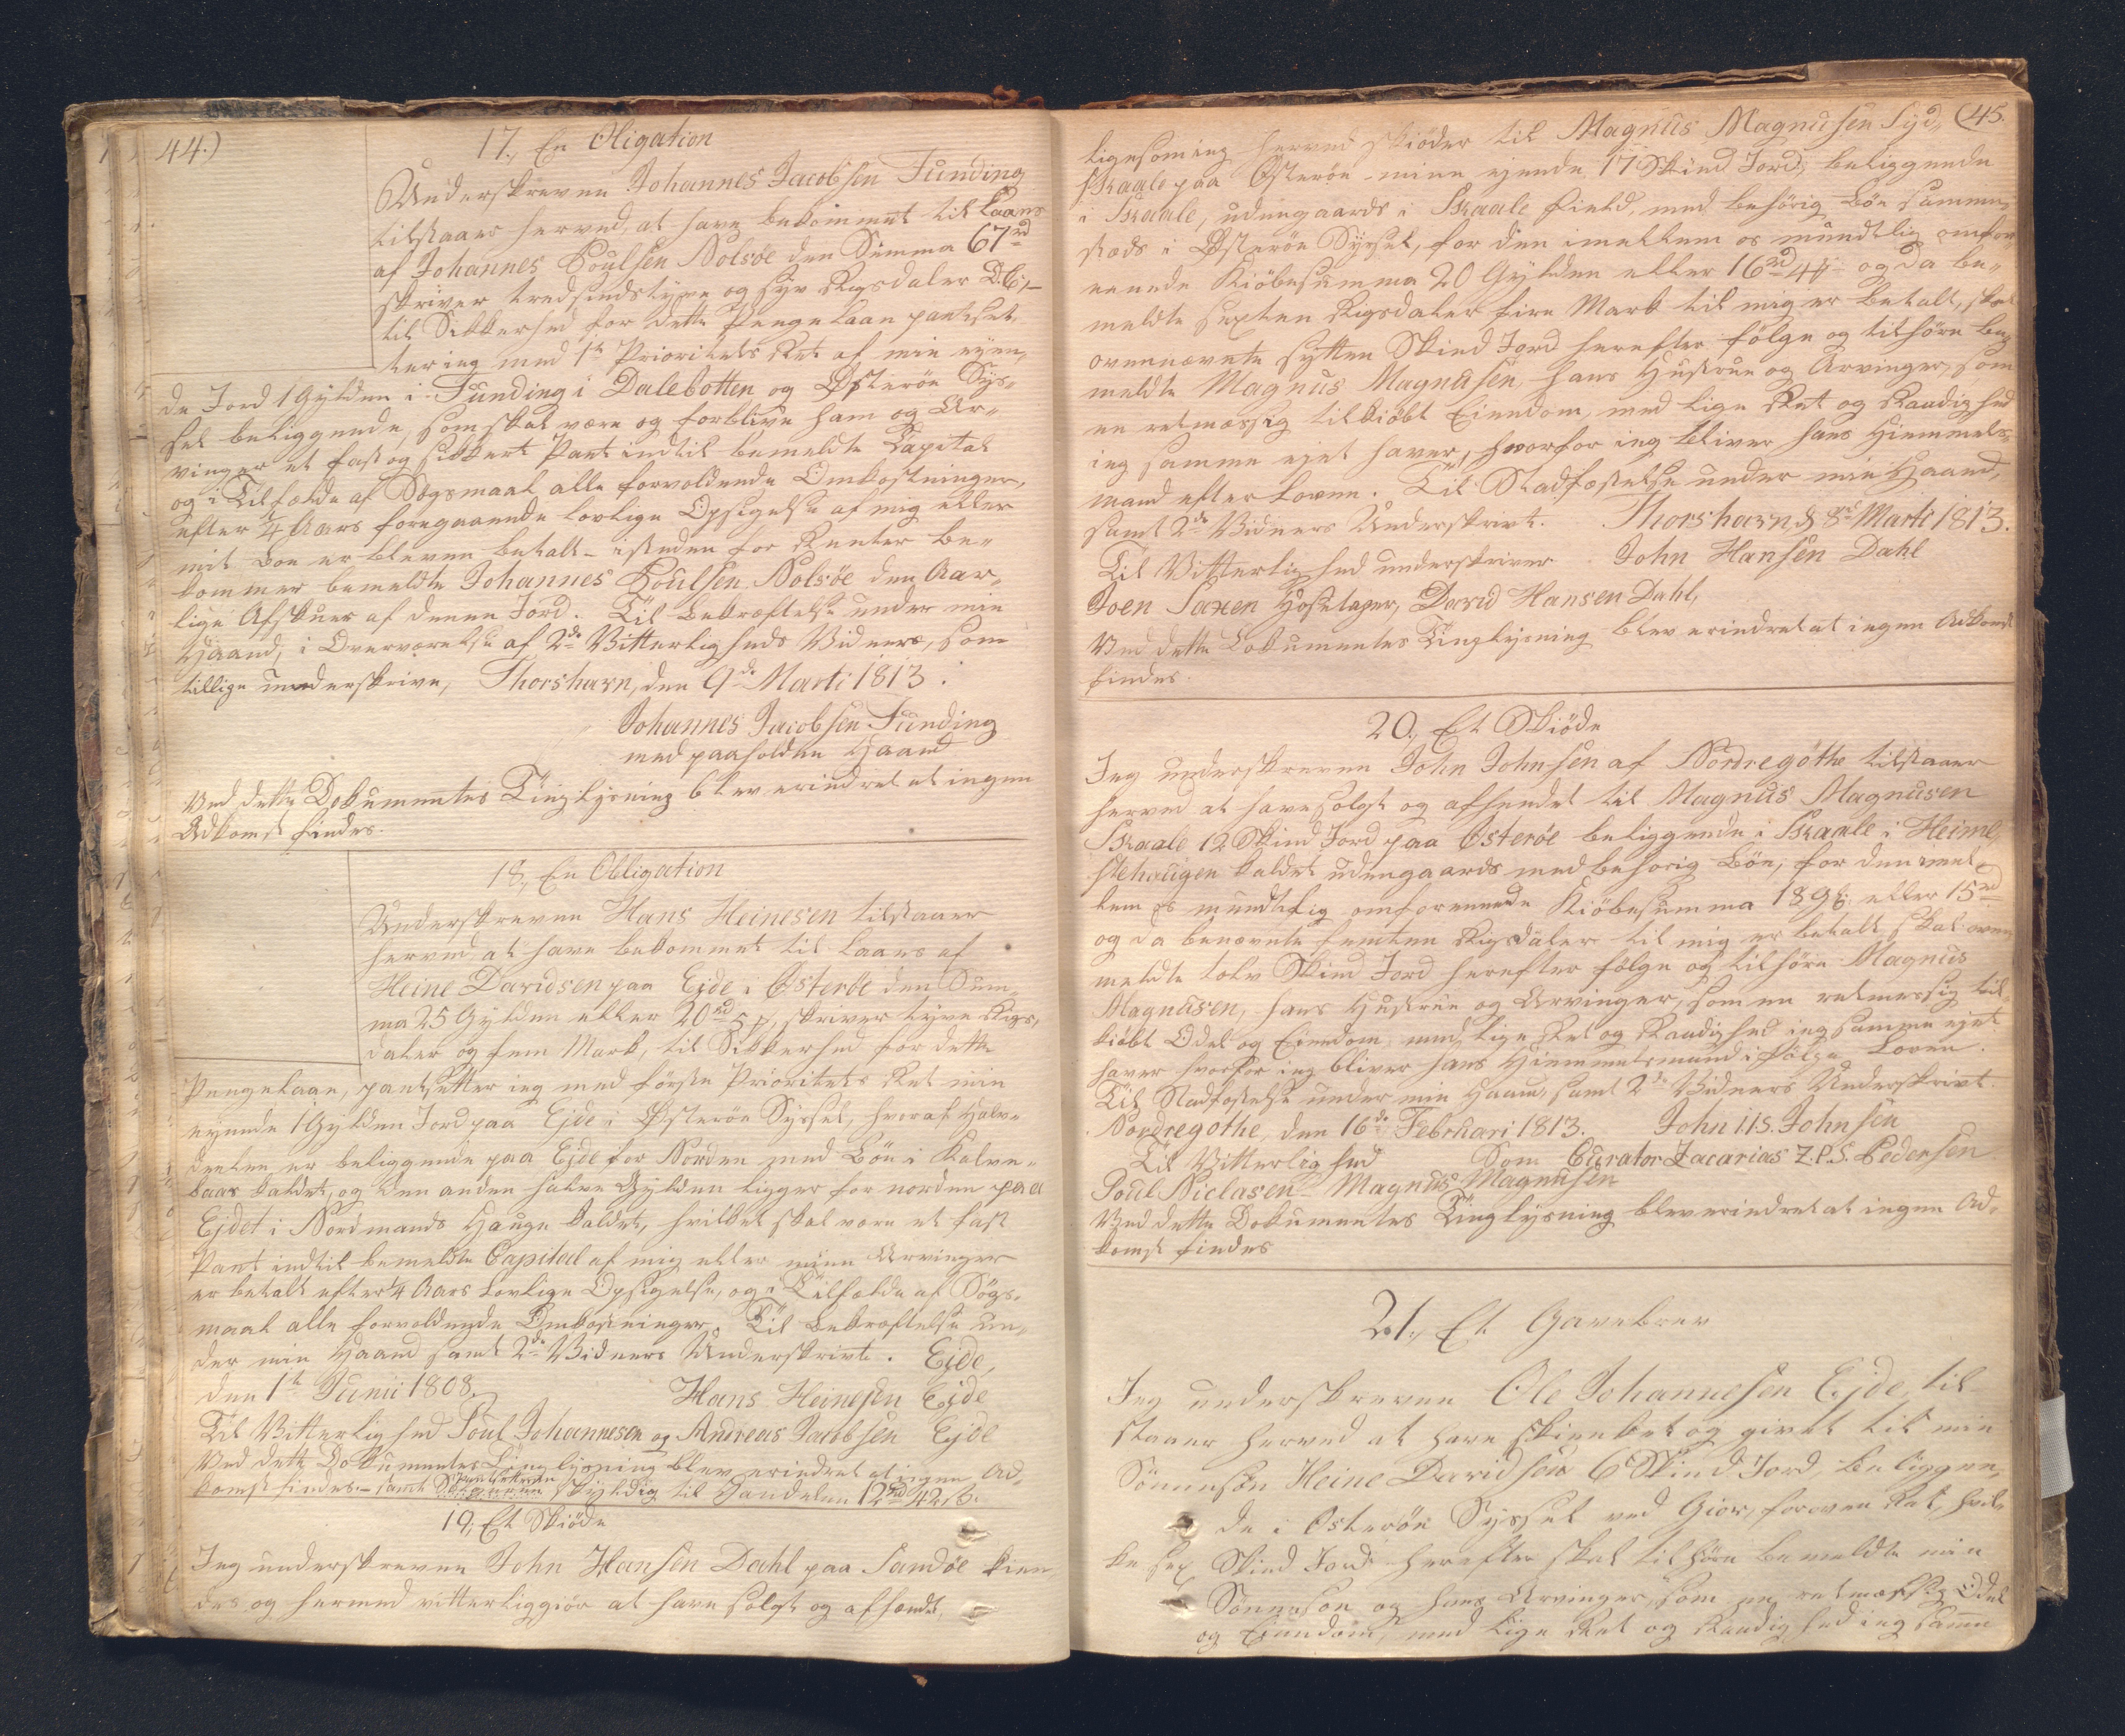 44.)
17., En Obligation
Underskreven Johannes Jacobsen Funding
tilstaaer herved, at have bekommet til Laans
af Johannes Poulsen Nolsöe den Summa 67rd
skriver tredsindstyve og syv Rigsdaler D.C.,
til Sikkerhed for dette Penge Laan pantset-
ter ieg med 1te Prioritets Ret af min eyen-
de Jord 1 Gylden i Funding i Dalebotten og Østeröe Sys-
sel beliggende, som skal være og forblive ham og Ar-
vinger et fast og sikkert Pant indtil bemeldte Capital
og i Tilfælde af Søgsmaal alle forvoldende Omkostninger,
efter 1/4 Aars foregaaende lovlige Opsigelse af mig eller
mit Boe er bleven betalt - isteden for Renter be-
kommer bemeldte Johannes Poulsen Nolsöe den Aar-
lige Afskuer af denne Jord. Til Bekræftelse under min
Haand, i Overværelse af 2de Vitterligheds Vidners, som
tillige underskrive, Thorshavn, den 9de Marti 1813.
Johannes Jacobsen Funding
med paaholden Haand
Ved dette Dokumentes Tinglysning blev erindret at ingen
Adkomst findes.
18., En Obligation
Underskreven Hans Heinesen tilstaaer
herved at have bekommet til Laans af
Heine Davidsen paa Ejde i Østeröe den Sum-
ma 25 Gylden eller 20rd 5 ₰, skriver tyve Rigs-
daler og fem Mark, til Sikkerhed for dette
Pengelaan, pantsetter ieg med förste Prioritets Ret min
eyende 1 Gylden Jord paa Ejde i Østeröe Syssel, hvoraf Halv-
deelen er beliggende paa Ejde for Norden med Böe i Kalve-
baas kaldet, og den anden halve Gylden ligger for norden paa
Ejdet i Nordmands Hauge kaldet, hvilket skal være et fast
Pant indtil bemeldte Capital af mig eller mine Arvinger
er betalt efter 1/4 Aars Lovlige Opsigelse, og i Tilfælde af Søgs-
maal alle forvoldende Omkostninger. Til Bekræftelse un-
der min Haand samt 2de Vidners Underskrivt. Ejde,
den 1te Junii 1808. Hans Heinesen Ejde
Til Vitterlighed Poul Johannesen og Andreas Jacobsen Ejde
Ved dette Dokumentes Tinglysning blev erindret at ingen Ad-
komst findes. - samt Pantsetteren skyldig til Handelen 12rd 42 ß.
19., Et Skiöde
Jeg underskreven John Hansen Dahl paa Sandöe kien-
des og hermed vitterliggiör at have solgt og afhændet,
45.
ligesom ieg herved skiöder til Magnus Magnusen Syd-
skaale paa Østeröe - mine ejende 17 Skind Jord, beliggende
i Skaale, udengaards i Skaale field, med behörig Böe samme-
steds i Østeröe Syssel, for den imellem os mundtlig omfor-
eenede Kiöbesumma 20 Gylden eller 16rd 4₰ og da be-
meldte sexten Rigsdaler fire Mark til mig er betalt, skal
ovennævnte sytten Skind Jord herefter fölge og tilhöre be-
meldte Magnus Magnusen, hans Hustrue og Arvinger, som
en retmæssig tilkiöbt Eiendom, med lige Ret og Raadighed
ieg samme ejet haver, hvorfor ieg bliver hans Hiemmels-
mand efter Loven. Til Stadfæstelse under min Haand,
samt 2de Vidners Underskrivt. Thorshavn d 8de Marti 1813.
Til Vitterlighed underskriver John Hansen Dahl
Joen Saxen Hosetager, David Hansen Dahl,
Ved dette Dokumentes Tinglysning blev erindret at ingen Adkomst
findes.
20., Et Skiöde
Jeg underskreven John Johnsen af Nordregöthe tilstaaer
herved at have solgt og afhendet til Magnus Magnusen
Skaale 12 Skind Jord paa Østeröe beliggende i Skaale i Heime-
stehaugen kaldet udengaards med behörig Böe, for den imel-
lem os mundtlig omforenede Kiöbesumma 18 Gl. eller 15rd
og da benævnte femten Rigsdaler til mig er betalt skal oven-
meldte tolv Skind Jord herefter fölge og tilhöre Magnus
Magnusen, hans Hustrue og Arvinger, som en retmessig til-
kiöbt Odel og Eiendom med lige Ret og Raadighed ieg samme ejet
haver hvorfor ieg bliver hans Hiemmelsmand i fölge Loven.
Til Stadfæstelse under min Haand, samt 2de Vidners Underskrivt.
Nordregöthe, den 16de Februari 1813. John I I S. Johnsen
Til Vitterlighed Som Curator Zacarias Z. P. S. Pedersen
Poul Niclasen - Magnus Magnusen
Ved dette Dokumentes Tinglysning blev erindret at ingen Ad-
komst findes
21., Et Gavebrev
Jeg underskreven Ole Johannesen Ejde, til-
staaer herved at have skienket og givet til min
Sönnesön Heine Davidsen 6 Skind Jord, beliggen-
de i Østeröe Syssel ved Giov, foroven Ret, hvil-
ke sex Skind Jord herefter skal tilhöre bemeldte min
Sönnesön og hans Arvinger, som en retmæssig Odel
og Eiendom, med lige Ret og Raadighed ieg samme